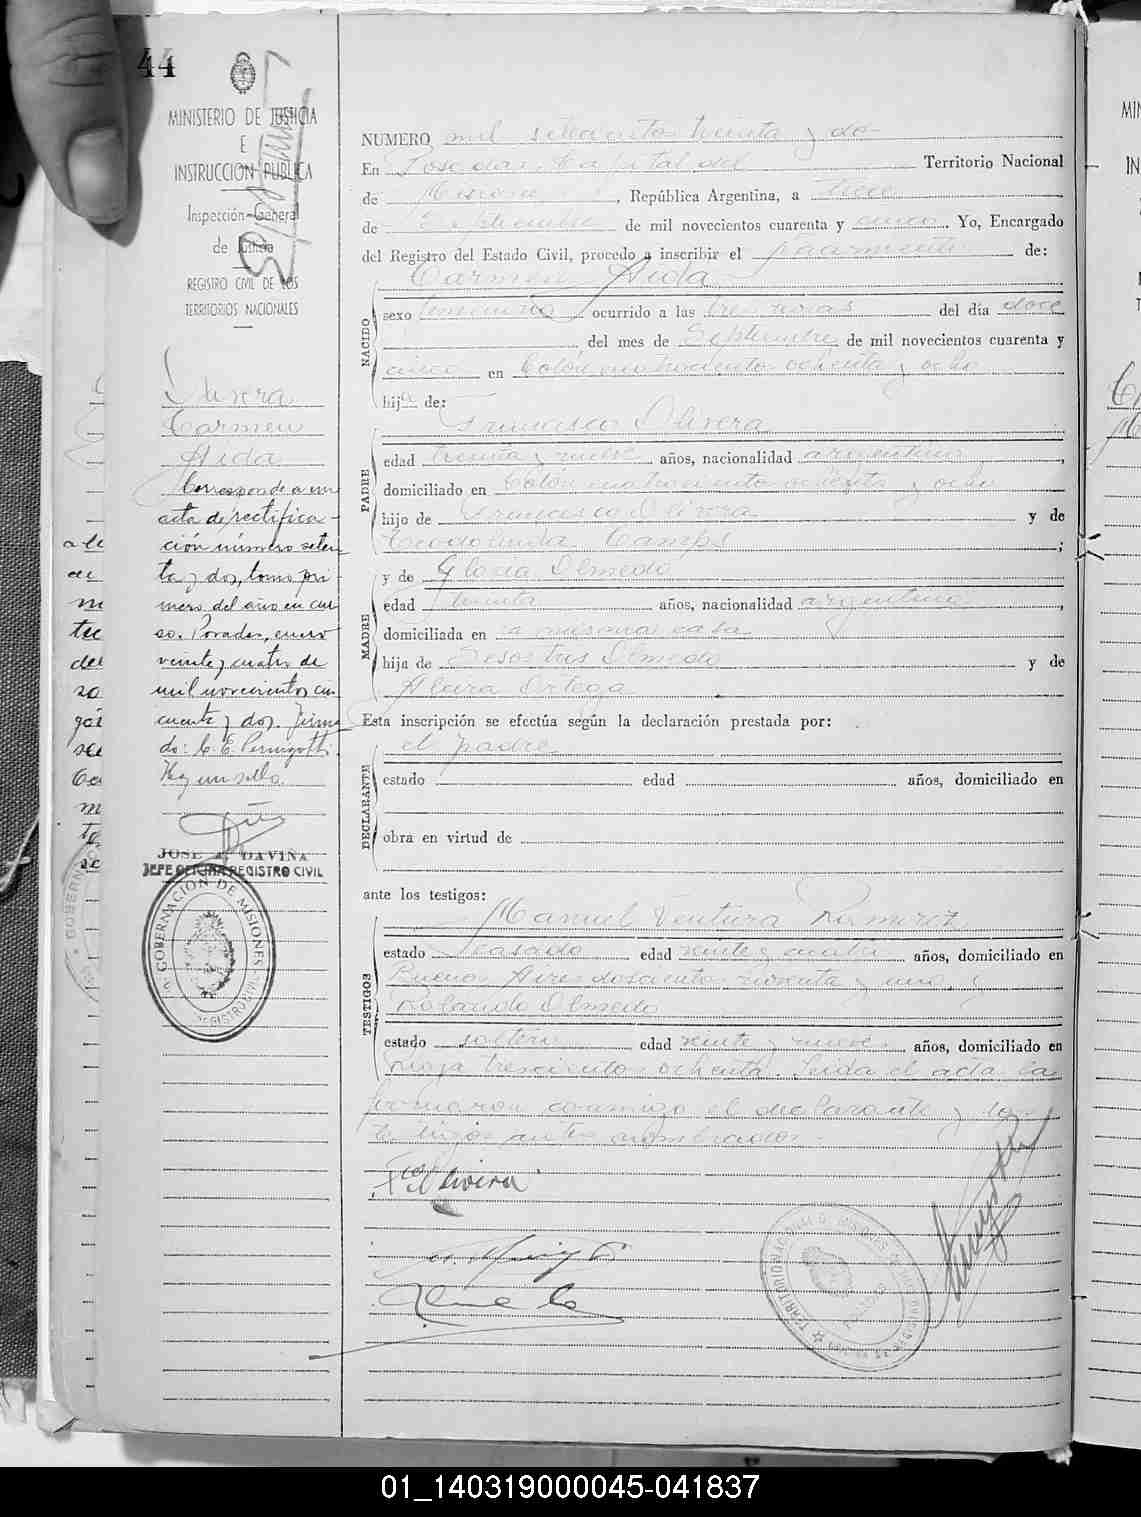 44
MINISTERIO DE JUSTICIA
E
INSTRUCCION PUBLICA
Inspección General
de Justicia
REGISTRO CIVIL DE LOS
TERRITORIOS NACIONALES
Olivera
Carmen
Aida
Corresponde a un
acta de rectifica-
ción número seten
ta y dos, tomo pri-
mero del año en cur
so. Posadas, enero
veinte y cuatro de
mil novecientos cin
cuenta y dos. Firma
do: C. E. Perugotti.
Hay un sello.
JOSE A. DAVIÑA
JEFE OFICINA REGISTRO CIVIL
GOBERNACION DE MISIONES
NUMERO mil setecientos treinta y dos
En Posadas, Capital del Territorio Nacional
de Misiones, República Argentina, a trece
de Septiembre de mil novecientos cuarenta y cinco. Yo, Encargado
del Registro del Estado Civil, procedo a inscribir el nacimiento de:
Carmen Aida
NACIDO
sexo femenino ocurrido a las tres horas del día doce
del mes de Septiembre de mil novecientos cuarenta y
cinco en Colón cuatrocientos ochenta y ocho
hija de:
Francisco Olivera
PADRE
edad treinta y nueve años, nacionalidad argentino,
domiciliado en Colón cuatrocientos ochenta y ocho
hijo de Francisco Olivera y de
Teodolinda Camps;
y de Gloria Olmedo
MADRE
edad treinta años, nacionalidad argentina,
domiciliada en la misma casa
hija de Sesostris Olmedo y de
Clara Ortega
Esta inscripción se efectúa según la declaración prestada por:
el padre
DECLARANTE
estado edad años, domiciliado en
obra en virtud de
ante los testigos:
Manuel Ventura Ramirez
TESTIGOS
estado casado edad veinte y cuatro años, domiciliado en
Buenos Aires doscientos noventa y uno, y
Rolando Olmedo
estado soltero edad veinte y nueve años, domiciliado en
Rioja trescientos ochenta. Leida el acta la
firmaron conmigo el declarante y los
testigos antes nombrados.
Fco Olivera
01_140319000045-041837